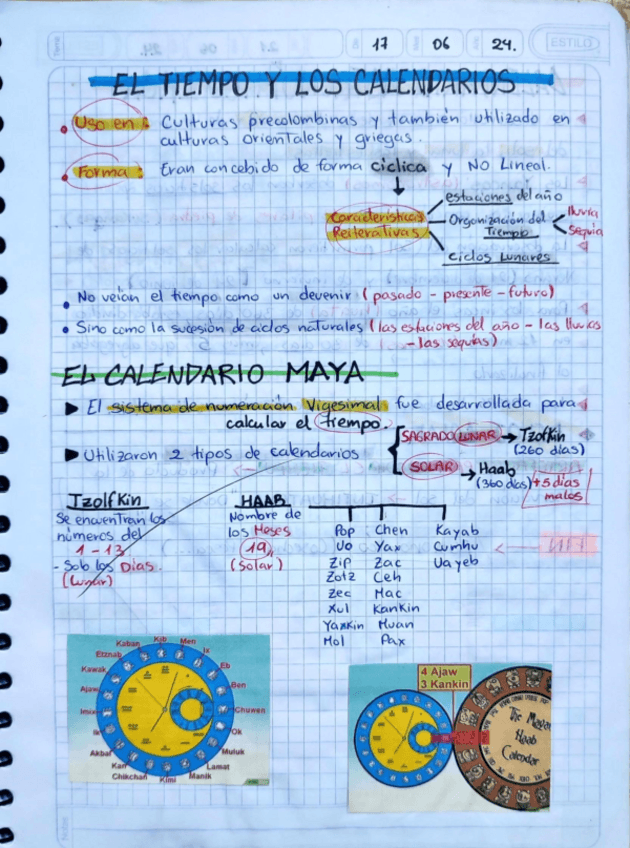 17 06 24.
ESTILO
EL TIEMPO Y LOS CALENDARIOS
Uso en: Culturas precolombinas y también utilizado en
culturas orientales y griegas.
Forma: Eran concebido de forma cíclica y NO Lineal.
Características
Reiterativas
estaciones del año
Organización del
Tiempo
lluvia
sequía
Ciclos Lunares
No veían el tiempo como un devenir (pasado - presente - futuro)
Sino como la sucesión de ciclos naturales (las estaciones del año - las lluvias
- las sequías)
EL CALENDARIO MAYA
El sistema de numeración Vigesimal fue desarrollada para
calcular el tiempo.
Utilizaron 2 tipos de calendarios
SAGRADO LUNAR → Tzolkin
(260 días)
SOLAR → Haab
(360 días) +5 días
malos
Tzolfkin
Se encuentran los
números del
1 - 13
- Sob los Días.
(Lunar)
HAAB
Nombre de
los Meses
19
(Solar)
Pop
Uo
Zip
Zotz
Zec
Xul
Yaxkin
Mol
Chen
Yax
Zac
Ceh
Mac
Kankin
Muan
Pax
Kayab
Cumhu
Uayeb
Kaban
Kib
Men
Ix
Etznab
Eb
Kawak
Ben
Ajaw
Chuwen
Imix
Ik
Ok
Akbal
Muluk
Kan
Lamat
Chikchan
Kimi
Manik
4 Ajaw
3 Kankin
The Mayan
Haab
Calendar